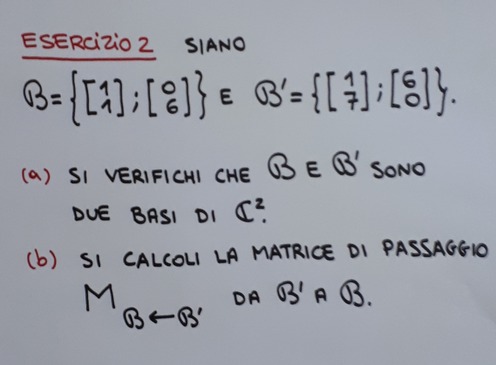 ESERCIZIO 2 SIANO
B = {[1 1]; [0 6]} E B' = {[1 7]; [6 0]}.
(a) SI VERIFICHI CHE B E B' SONO
DUE BASI DI ℂ².
(b) SI CALCOLI LA MATRICE DI PASSAGGIO
M B←B' DA B' A B.